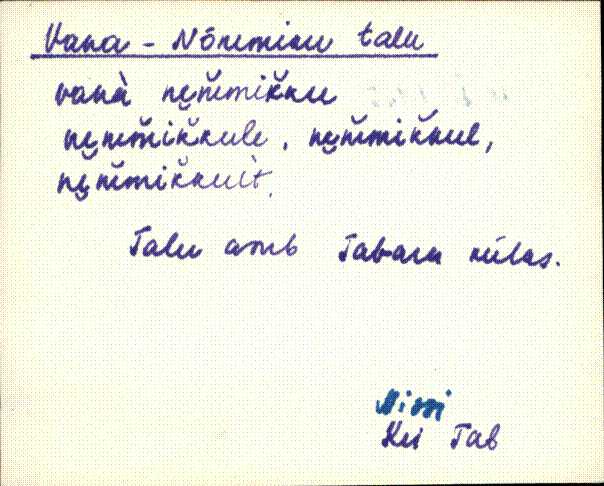 Vana - Nõmmiku talu
vanà ne̮m̆mik̆ku
ne̮m̆mik̆kule, ne̮m̆mik̆kul,
ne̮m̆mik̆kuìt.
Talu asub Tabara külas.
Nissi
Kei Tab